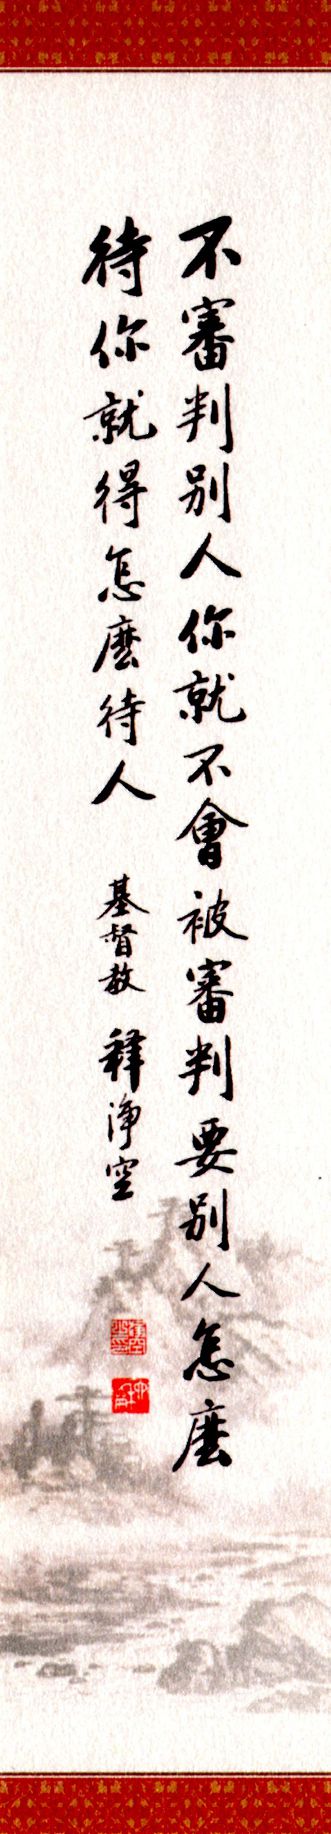 不審判別人你就不會被審判要別人怎麼
待你就得怎麼待人 基督教 釋淨空